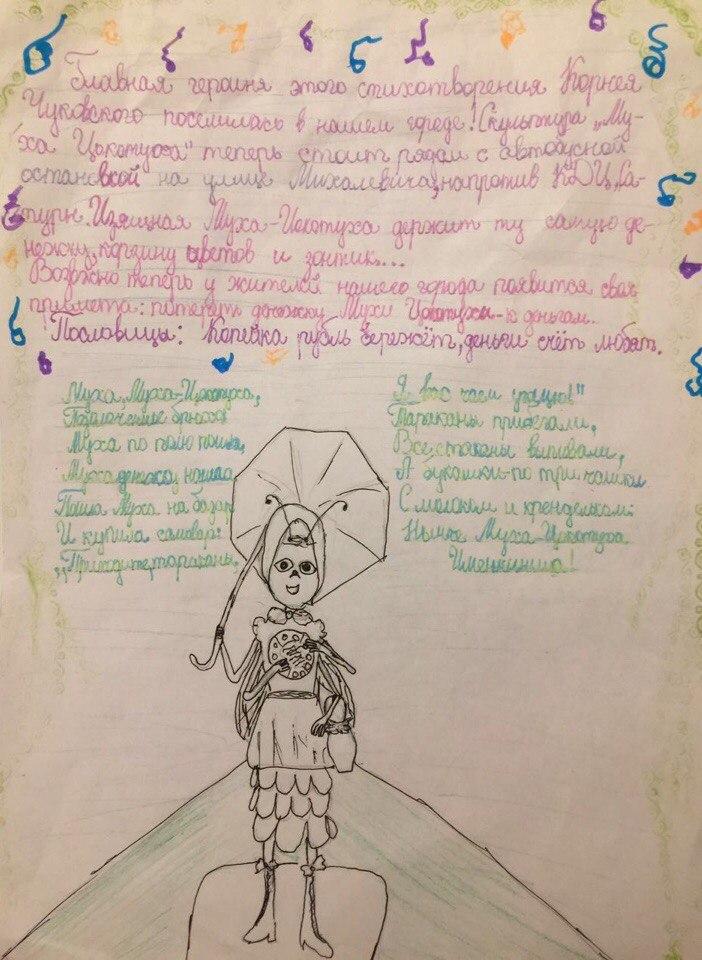 Главная героиня этого стихотворения Корнея
Чуковского поселилась в нашем городе! Скульптура „Му-
ха Цокотуха" теперь стоит рядом с автобусной
остановкой на улице Михалевича, напротив КДЦ „Са-
турн. Изящная Муха-Цокотуха держит ту самую де-
нежку, корзину цветов и зонтик...
Возможно теперь у жителей нашего города появится своя
примета: потереть денежку Мухи Цокотухи-к деньгам.
Пословицы: Копейка рубль бережёт, деньги счёт любят.
Муха, Муха-Цокотуха,
Позолоченное брюхо!
Муха по полю пошла,
Муха денежку нашла.
Пошла Муха на базар
И купила самовар:
„Приходите, тараканы,
Я вас чаем угощу!"
Тараканы прибегали,
Все стаканы выпивали,
А букашки-по три чашки
С молоком и крендельком:
Нынче Муха-Цокотуха
Именинница!